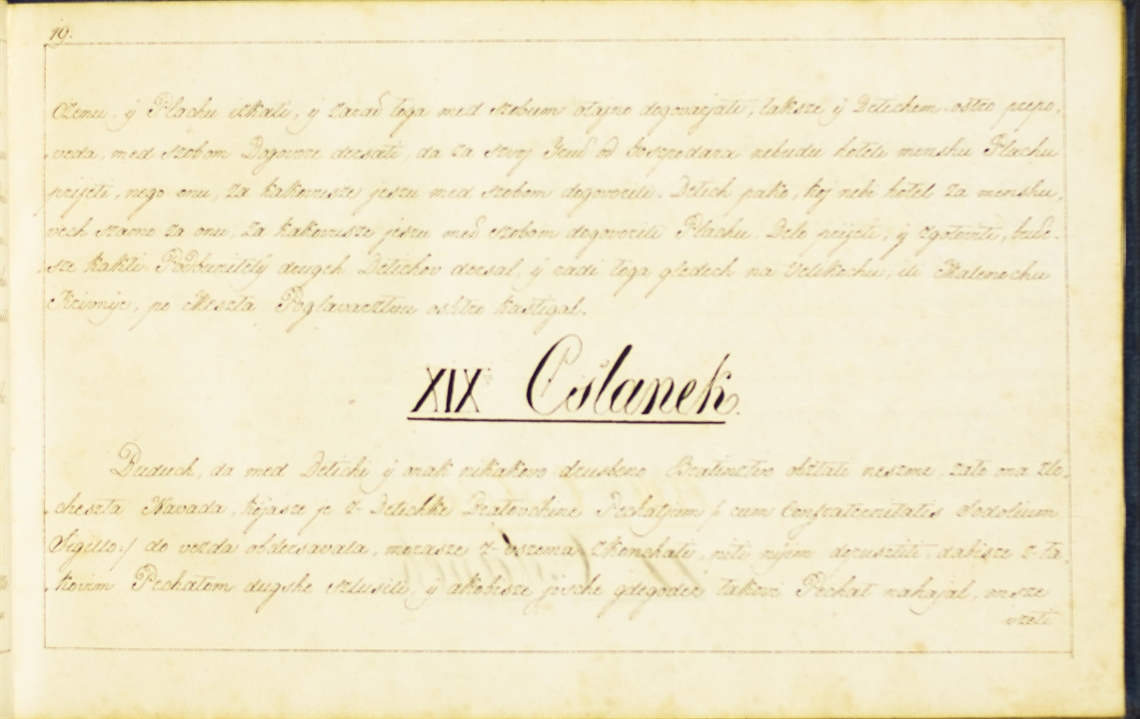 19.
Czenu, y Plachu izkati, y zarad toga med szobum otajno dogovarjati, takise y Detichem ostro prepo,
,veda, med szobom Dogovore dersati, da za szvoj Trud od Goszpodara nebudu hoteli menshu Plachu
prijeti, nego onu, za kakovusze jeszu med szobom dogovorili. Detich pako, koj nebi hotel za menshu,
vech szamo za onu, za kakovusze jeszu med szobom dogovorili Plachu, Delo prijeti, y zgotoviti, bude-
sze kakti Podbunitely drugeh Detichov dersal, y radi toga gledech na Velikochu, ili Malenochu
Krivnje, po Meszta Poglavarztvu oshtro kastigal.
XIX Cslanek.
Buduch, da med Detichi y onak nikakovo drusbeno Bratinztvo obztati neszme, zato ona zlo-
,cheszta Navada, kojasze je z-Detichke Bratovchine Pechatjum /: cum Confraternitatis Sodalium
Sigillo :/ do vezda obdersavala, morasze z-vszema zkonchati, niti nijem dopusztiti, dabisze z-ta,
,kovim Pechatom dugshe szlusili, y akobisze joshche gdegoder takov Pechat nahajal, onsze
vzeti